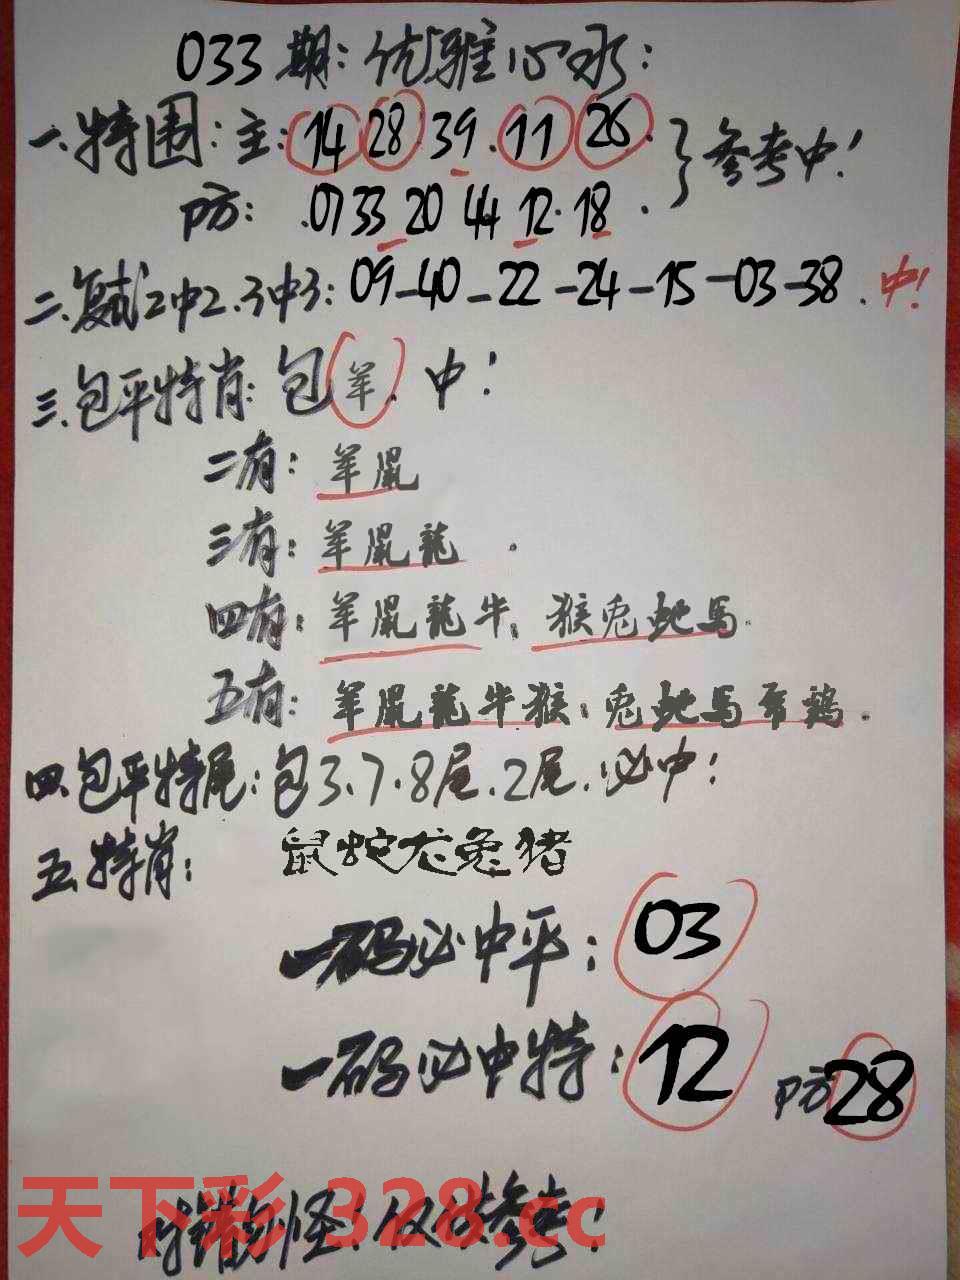 033期:优雅心水:
一.特围:主:14 28.39.11 26.}参考中!
防:.0733 20 44 12.18.
二.复式2中2.3中3:09-40-22-24-15-03-38.中!
三.包平特肖:包羊.中!
二有:羊鼠
三有:羊鼠龍.
四有:羊鼠龍牛;猴兔蛇馬.
五有:羊鼠龍牛猴;兔蛇馬虎鷄.
四.包平特尾:包3.7.8尾.2尾.必中!
五.特肖:鼠蛇龙兔猪
一码必中平:03
一码必中特:12 防28
对错勿怪!仅供参考!
天下彩328.cc